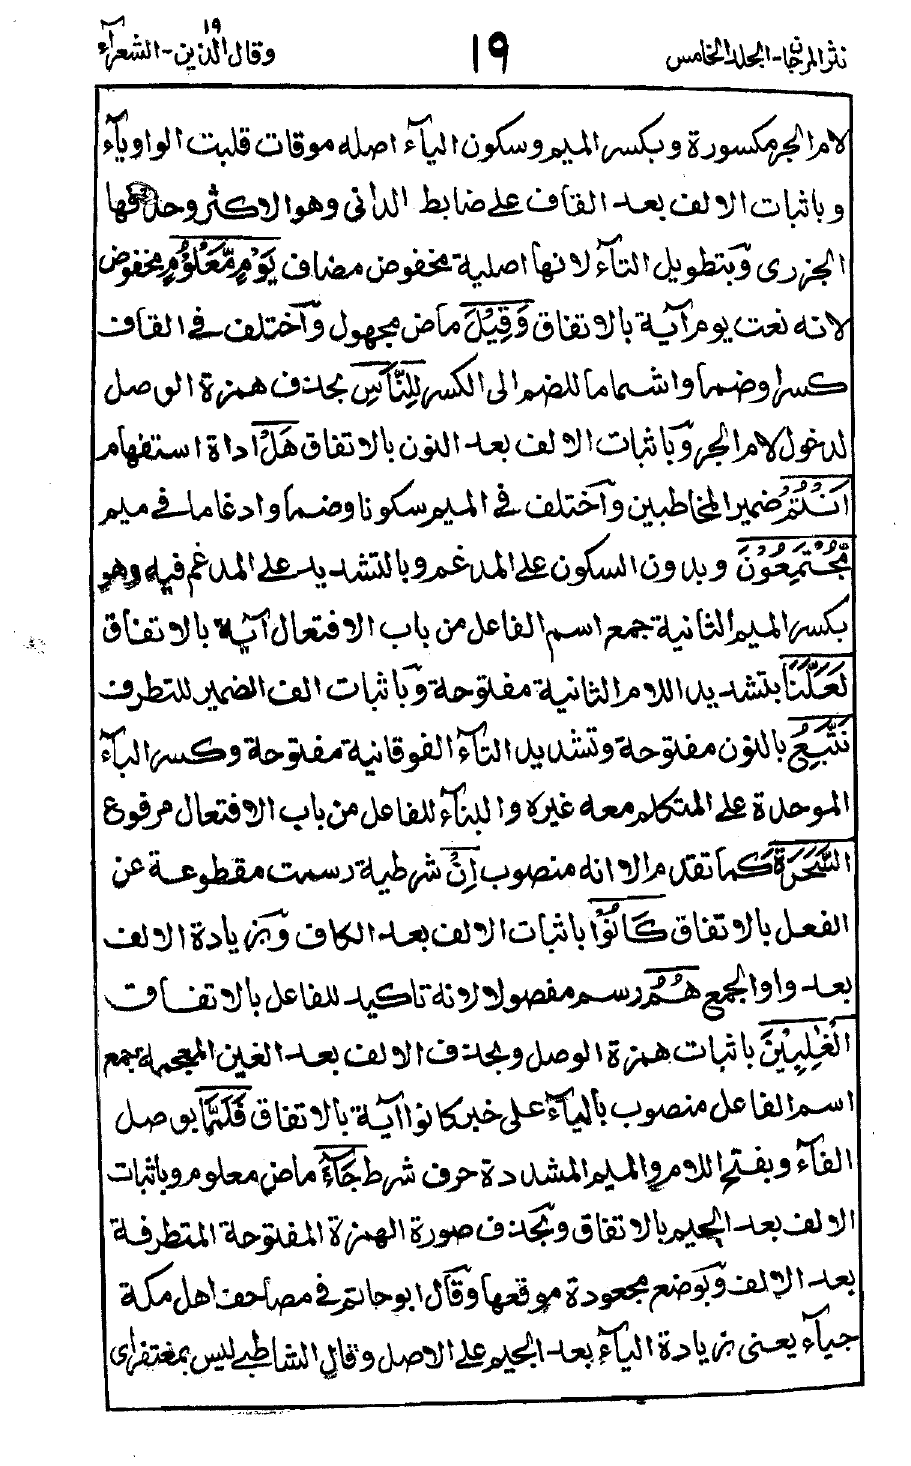 نثر المرجان - الجلد الخامس
١٩
وقال الذين ١٩ - الشعرآء
لام الجر مكسورة وبكسر الميم وسكون اليآء اصله موقات قلبت الواو يآء
وباثبات الالف بعد القاف على ضابط الدانى وهو الاكثر وحذفها
الجزرى وبتطويل التآء لانها اصلية مخفوض مضاف يَوْمٍ مَّعْلُوْمٍ مخفوض
لانه نعت يوم آية بالاتفاق وَقِيْلَ ماض مجهول واختلف فى القاف
كسرا وضما واشماما للضم الى الكسر لِلنَّاسِ بحذف همزة الوصل
لدخول لام الجر وباثبات الالف بعد النون بالاتفاق هَلْ اداة استفهام
اَنْتُمْ ضمير المخاطبين واختلف فى الميم سكونا وضما وادغاما فى ميم
مُّجْتَمِعُوْنَ وبدون السكون على المدغم وبالتشديد على المدغم فيه وهو
بكسر الميم الثانية جمع اسم الفاعل من باب الافتعال آية بالاتفاق
لَعَلَّنَا بتشديد اللام الثانية مفتوحة وباثبات الف الضمير للتطرف
نَتَّبِعُ بالنون مفتوحة وتشديد التآء الفوقانية مفتوحة وكسر البآء
الموحدة على المتكلم معه غيره والبنآء للفاعل من باب الافتعال مرفوع
السَّحَرَةَ كما تقدم الا انه منصوب اِنْ شرطية رسمت مقطوعة عن
الفعل بالاتفاق كَانُوْا باثبات الالف بعد الكاف وبزيادة الالف
بعد واو الجمع هُمُ رسم مفصولا لانه تاكيد للفاعل بالاتفاق
الْغٰلِبِيْنَ باثبات همزة الوصل وبحذف الالف بعد الغين المعجمة جمع
اسم الفاعل منصوب باليآء على خبر كانوا آية بالاتفاق فَلَمَّا بوصل
الفآء وبفتح اللام والميم المشددة حرف شرط جَآءَ ماض معلوم وباثبات
الالف بعد الجيم بالاتفاق وبحذف صورة الهمزة المفتوحة المتطرفة
بعد الالف وبوضع مجعودة موقعها وقال ابو حاتم فى مصاحف اهل مكة
جيآء يعنى بزيادة اليآء بعد الجيم على الاصل وقال الشاطبى ليس بمغتفر اى